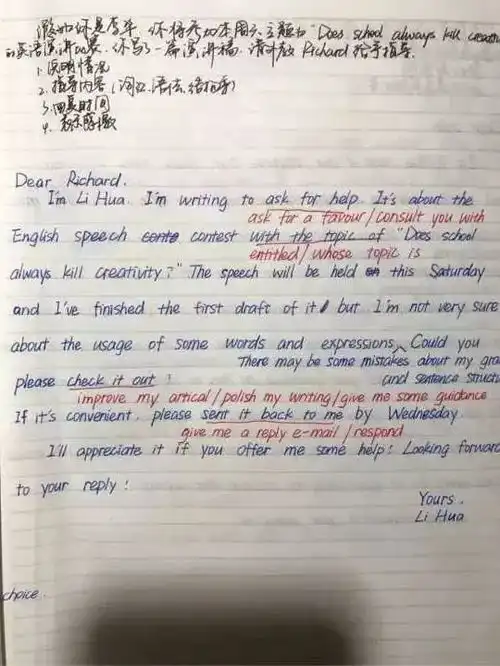 假如你是李华, 你将参加本周六主题为 "Does school always kill creati
的英语演讲比赛. 你写了一篇演讲稿. 请 Richard 给予指导.
1. 说明情况
2. 指导内容 (词汇、语法、结构等)
3. 回复时间
4. 表示感激
Dear Richard.
I'm Li Hua. I'm writing to ask for help. It's about the
ask for a favour/consult you with
English speech contest with the topic of "Does school
entitled/whose topic is
always kill creativity?" The speech will be held this Saturday
and I've finished the first draft of it, but I'm not very sure
about the usage of some words and expressions. Could you
There may be some mistakes about my gra
please check it out? and sentence structu
improve my artical/polish my writing/give me some guidance
If it's convenient, please sent it back to me by Wednesday.
give me a reply e-mail/respond
I'll appreciate it if you offer me some help! Looking forward
to your reply!
Yours,
Li Hua
choice.